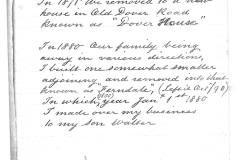 In 1871 we removed to a new
house in Old Dover Road
known as "Dover House"
In 1880 Our family being
away in various directions,
I built one somewhat smaller
adjoining and removed into that
known as "Ferndale," (
In which year Jan 1st 1880
I made over my business
to my Son Walter